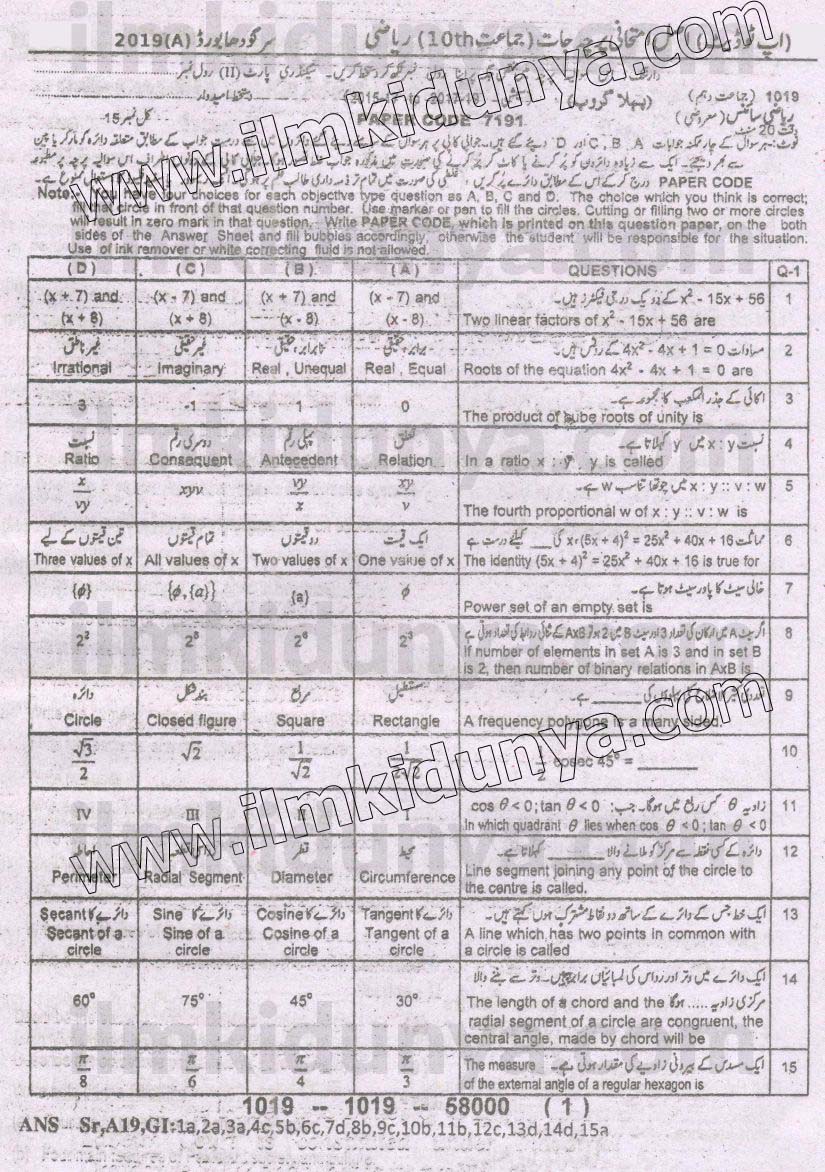 (اپ ٹو ڈیٹ) اصل امتحانی پرچہ جات (جماعت 10th) ریاضی سرگودھا بورڈ 2019(A)
1019 (جماعت دہم) (پہلا گروپ)
ریاضی سائنس (معروضی) کل نمبر-15
PAPER CODE 7191
www.ilmkidunya.com
Note: your choices for each objective type question as A, B, C and D. The choice which you think is correct;
fill that circle in front of that question number. Use marker or pen to fill the circles. Cutting or filling two or more circles
will result in zero mark in that question. Write PAPER CODE, which is printed on this question paper, on the both
sides of the Answer Sheet and fill bubbles accordingly, otherwise the student will be responsible for the situation.
Use of ink remover or white correcting fluid is not allowed.
( D ) ( C ) ( B ) ( A ) QUESTIONS Q-1
(x + 7) and (x - 7) and (x + 7) and (x - 7) and x² - 15x + 56 کے دو یک درجی فیکٹرز ہیں۔ 1
(x + 8) (x + 8) (x - 8) (x - 8) Two linear factors of x² - 15x + 56 are
غیر ناطق غیر حقیقی نابرابر، حقیقی برابر، حقیقی مساوات 4x² - 4x + 1 = 0 کے روٹس ہیں۔ 2
Irrational Imaginary Real , Unequal Real , Equal Roots of the equation 4x² - 4x + 1 = 0 are
3 -1 1 0 اکائی کے جذر المکعب کا مجموعہ ہے۔ 3
The product of cube roots of unity is
نسبت دوسری رقم پہلی رقم تعلق نسبت x : y میں y کہلاتا ہے۔ 4
Ratio Consequent Antecedent Relation In a ratio x : y , y is called
x/vy xyv vy/x xy/v x : y :: v : w میں چوتھا تناسب w ہے۔ 5
The fourth proportional w of x : y :: v : w is
تین قیمتوں کے لیے تمام قیمتوں دو قیمتوں ایک قیمت مماثلت (5x + 4)² = 25x² + 40x + 16 x کی ___ کیلئے درست ہے 6
Three values of x All values of x Two values of x One value of x The identity (5x + 4)² = 25x² + 40x + 16 is true for
{ϕ} {ϕ,{a}} {a} ϕ خالی سیٹ کا پاور سیٹ ہوتا ہے۔ 7
Power set of an empty set is
2² 2⁸ 2⁶ 2³ اگر سیٹ A میں ارکان کی تعداد 3 اور سیٹ B میں 2 ہو تو AxB کے ثنائی روابط کی تعداد ہوتی ہے 8
If number of elements in set A is 3 and in set B
is 2, then number of binary relations in AxB is
دائرہ بند شکل مربع مستطیل 9
Circle Closed figure Square Rectangle A frequency polygons is a many sided.
√3/2 √2 1/√2 1/2√2 1/2 cosec 45° = ______ 10
IV III II I زاویہ θ کس ربع میں ہوگا۔ جب: cos θ < 0 ; tan θ < 0 11
In which quadrant θ lies when cos θ < 0 ; tan θ < 0
قطر محیط دائرہ کے کسی نقطہ سے مرکز کو ملانے والا ______ کہلاتا ہے۔ 12
Perimeter Radial Segment Diameter Circumference Line segment joining any point of the circle to
the centre is called.
دائرے کا Secant دائرے کا Sine دائرے کا Cosine دائرے کا Tangent ایک خط جس کے دائرے کے ساتھ دو نقاط مشترک ہوں کہتے ہیں۔ 13
Secant of a circle Sine of a circle Cosine of a circle Tangent of a circle A line which has two points in common with
a circle is called
ایک دائرے میں وتر اور رداس کی لمبائیاں برابر ہیں۔ وتر سے بننے والا 14
60° 75° 45° 30° مرکزی زاویہ ..... ہوگا The length of a chord and the
radial segment of a circle are congruent, the
central angle, made by chord will be
π/8 π/6 π/4 π/3 ایک مسدس کے بیرونی زاویے کی مقدار ہوتی ہے۔ The measure 15
of the external angle of a regular hexagon is
1019 -- 1019 -- 58000 ( 1 )
ANS Sr,A19,GI:1a,2a,3a,4c,5b,6c,7d,8b,9c,10b,11b,12c,13d,14d,15a